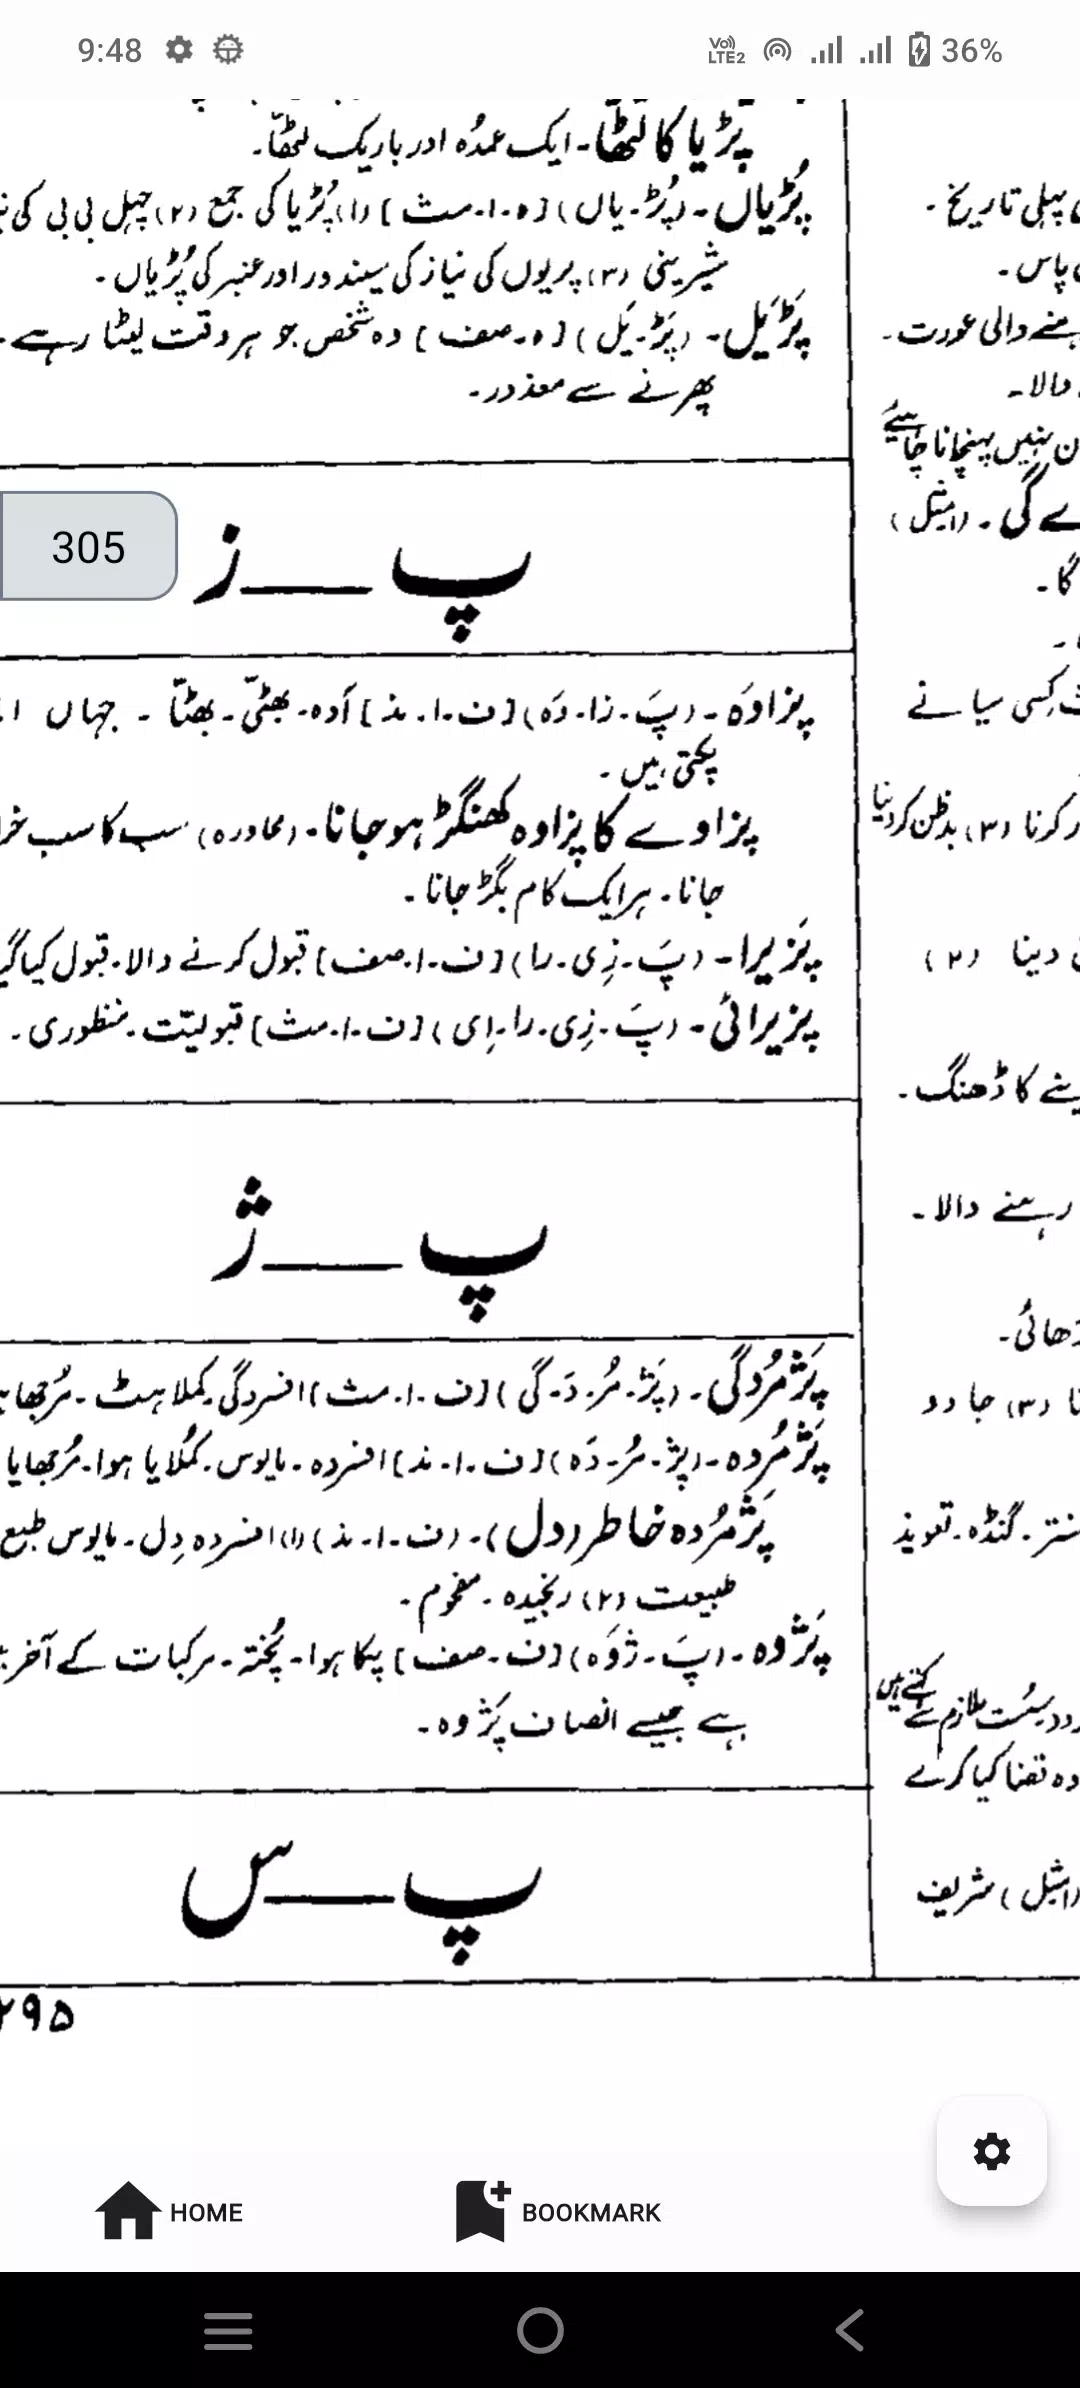 9:48
Vo) LTE2
36%
پڑیا کا لٹھا۔ ایک عمدہ اور باریک لٹھا۔
پُڑیاں۔ (پُڑ۔یاں) [ہ۔ا۔مث] (۱) پُڑیا کی جمع (۲) چہل بی بی کی
شیرینی (۳) پریوں کی نیاز کی سیندور اور عنبر کی پُڑیاں۔
پَڑیَل۔ (پَڑ۔یَل) [ہ۔صف] وہ شخص جو ہر وقت لیٹا رہے۔
پھرنے سے معذور۔
پ ـــ ز
305
پزاوَہ۔ (پَ۔زا۔وَہ) [ف۔ا۔مذ] آوہ۔ بھٹی۔ بھٹا۔ جہاں
پکتی ہیں۔
پزاوے کا پزاوہ کھنگڑ ہو جانا۔ (محاورہ) سب کا سب
جانا۔ ہر ایک کام بگڑ جانا۔
پَزیرا۔ (پَ۔زِی۔را) [ف۔ا۔صف] قبول کرنے والا۔ قبول کیا
پزیرائی۔ (پَ۔زِی۔را۔اِی) [ف۔ا۔مث] قبولیّت۔ منظوری۔
پ ـــ ژ
پَژمُردگی۔ (پَژ۔مُر۔دَ۔گی) [ف۔ا۔مث] افسردگی۔ کملاہٹ۔
پَژمُردہ۔ (پژ۔مُر۔دَہ) [ف۔ا۔مذ] افسردہ۔ مایوس۔ کُملایا ہوا۔ مُرجھایا
پَژمُردہ خاطر (دل)۔ (ف۔ا۔مذ) (۱) افسردہ دِل۔ مایوس طبع
طبیعت (۲) رنجیدہ۔ مغموم۔
پَژوہ۔ (پَ۔ژوَہ) [ف۔صف] پکا ہوا۔ پُختہ۔ مرکبات کے آخر
ہے جیسے انصاف پَژوہ۔
پ ـــ س
۲۹۵
پہلی تاریخ۔
پاس۔
والی عورت۔
والا۔
نہیں پہنچانا چاہیئے
گی۔ (مثل)
گا۔
کِسی سیانے
کرنا (۳) بدظن کر دینا
دینا (۲)
کا ڈھنگ۔
رہنے والا۔
(۳) جادو
گنڈہ۔ تعویذ
سُست ملازم کہتے ہیں
وہ قضا کیا کرے
(مثل) شریف
HOME
BOOKMARK